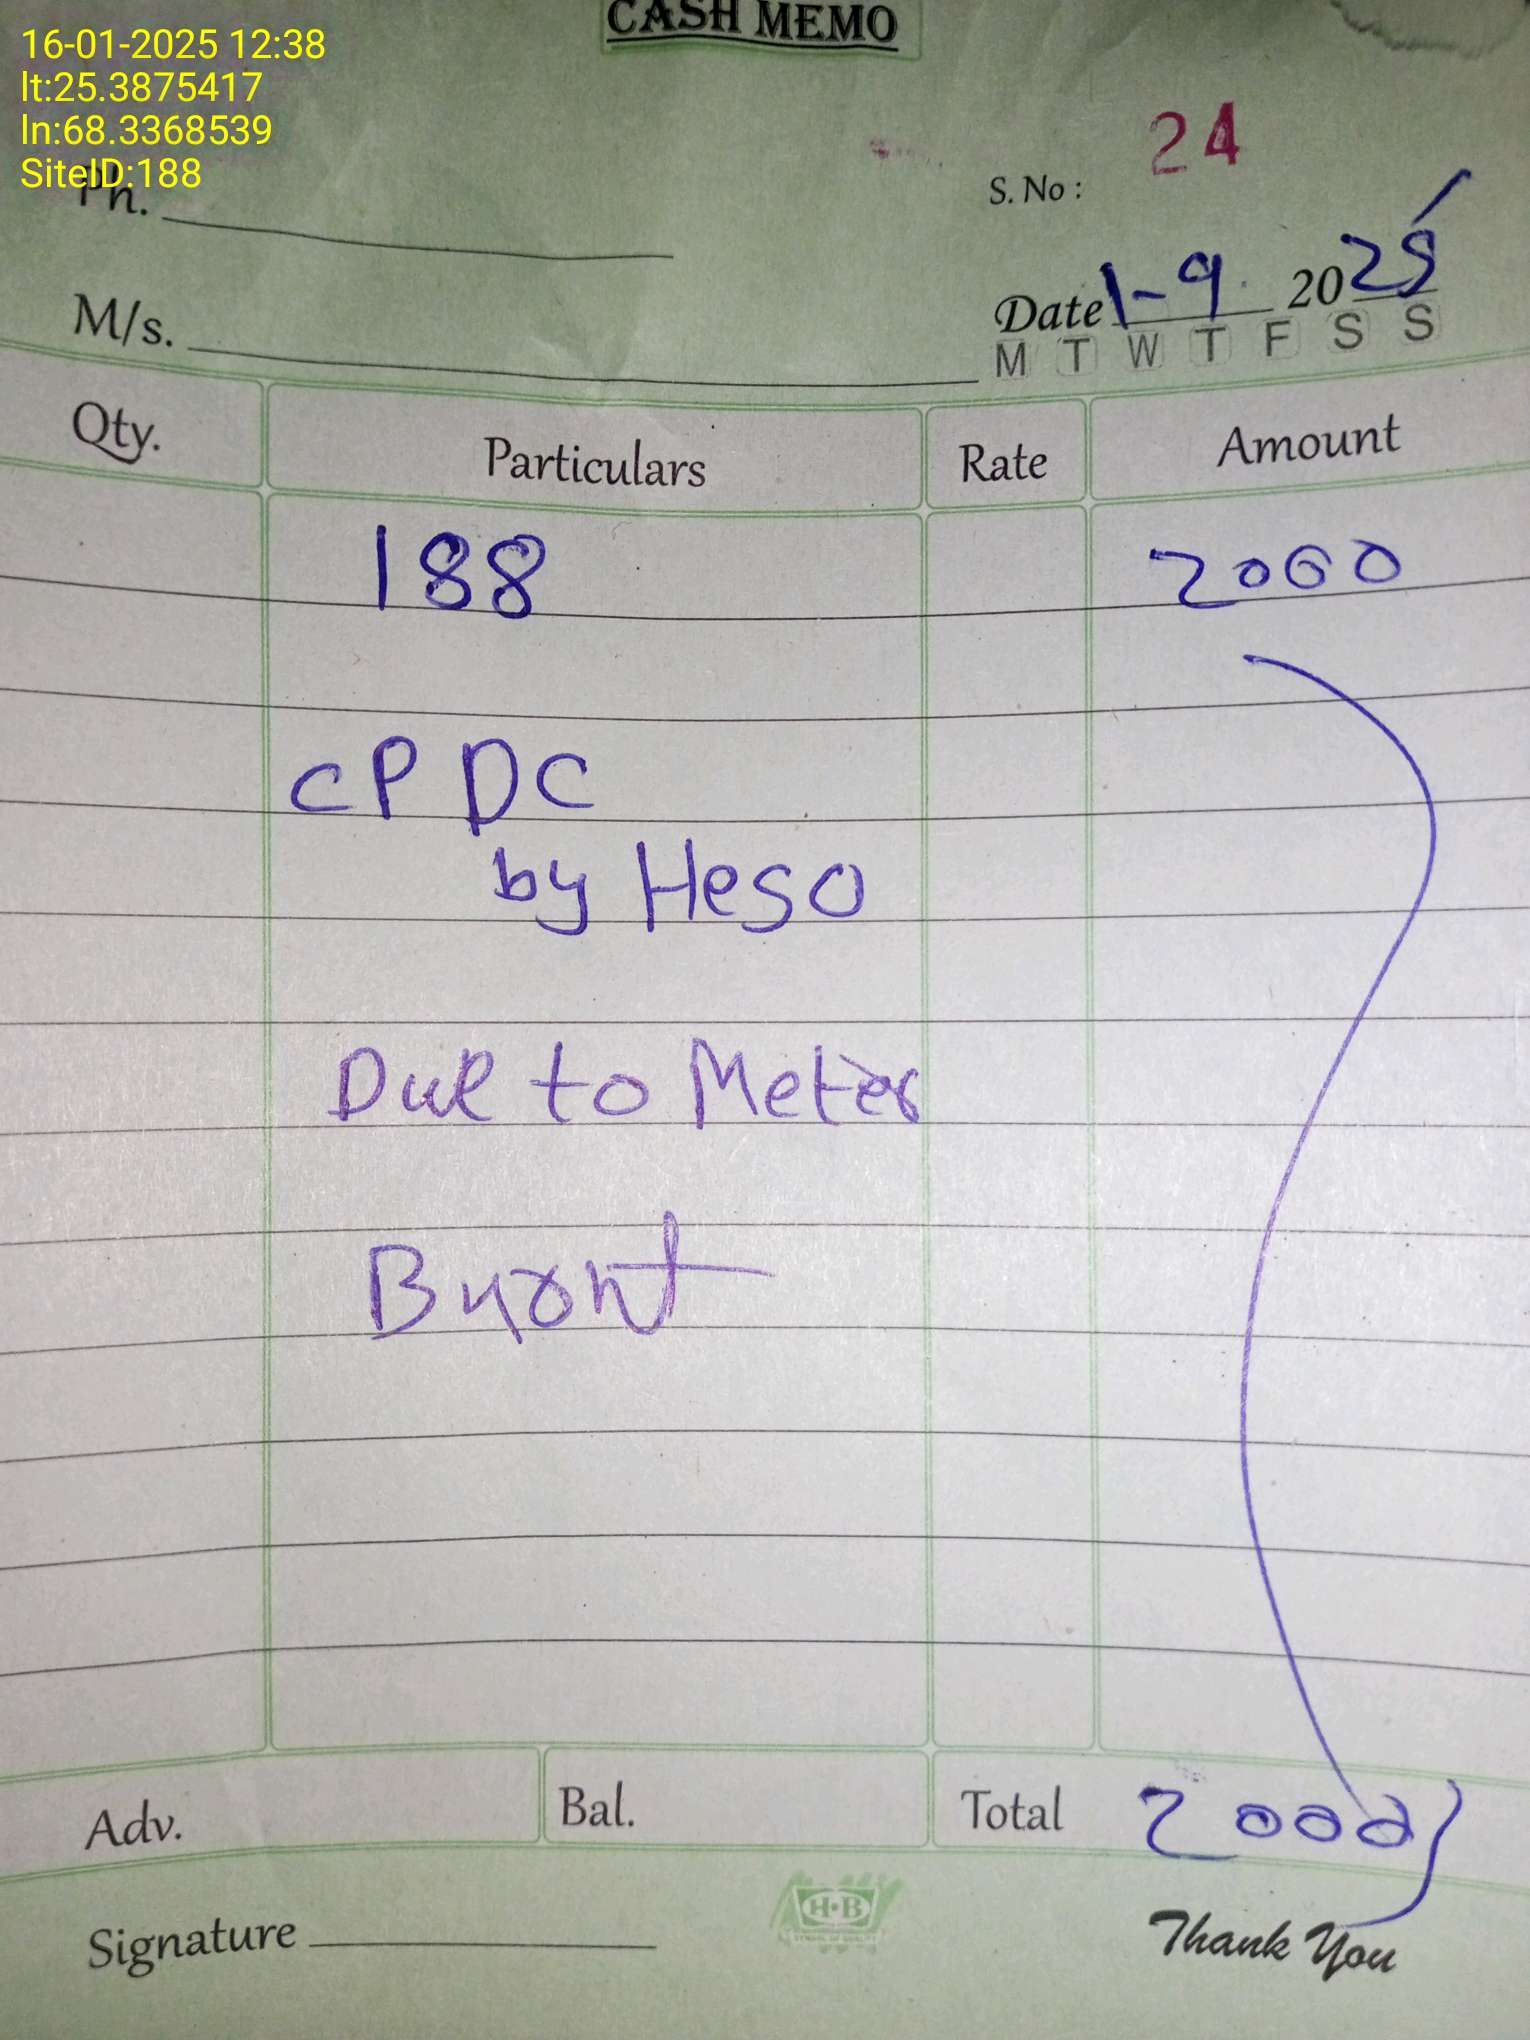 CASH MEMO
16-01-2025 12:38
lt:25.3875417
ln:68.3368539
SiteID:188
Ph.
S. No : 24
Date 1-9 2025
M/s.
M T W T F S S
Qty. Particulars Rate Amount
188 2000
CP DC
by Heso
Due to Meter
Burnt
Adv. Bal. Total 2000
H·B
Signature
Thank You